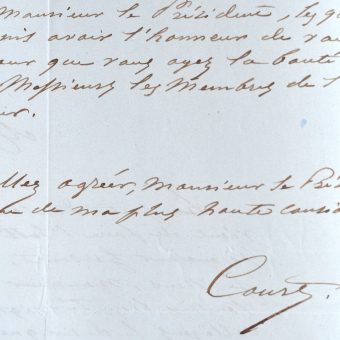 Monsieur le Président, les qu
avoir l'honneur de vou
que vous ayez la bonté
Messieurs les Membres de l
ur.
llez agréer, Monsieur le Prés
de ma plus haute consid